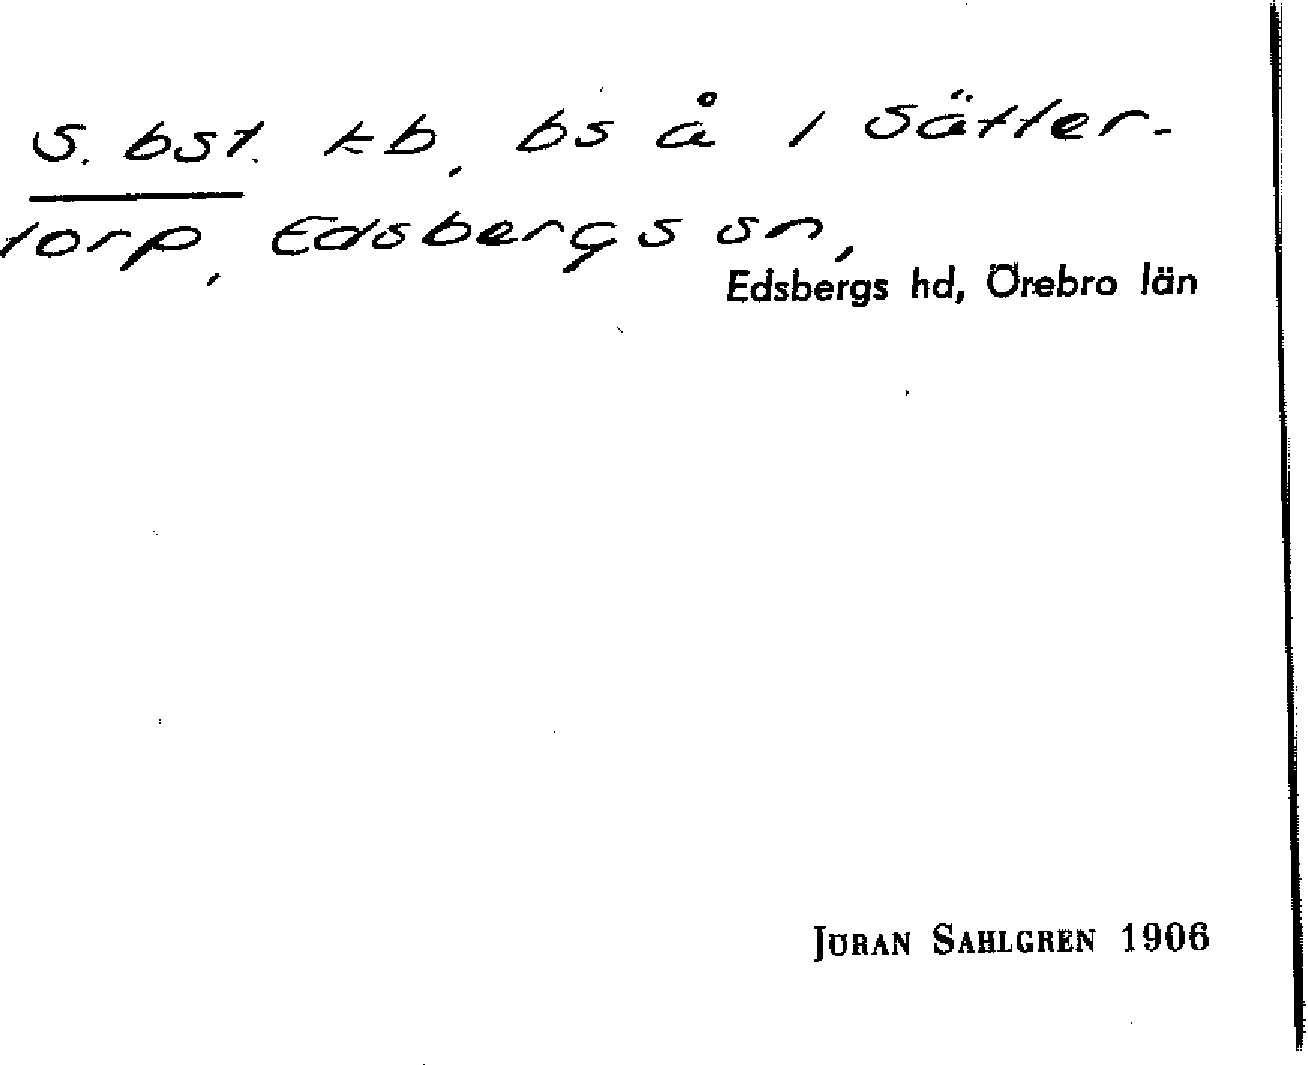 S. bst. kb, bs å i Sätter-
torp, Edsbergs sn,
Edsbergs hd, Örebro län
JÖRAN SAHLGREN 1906